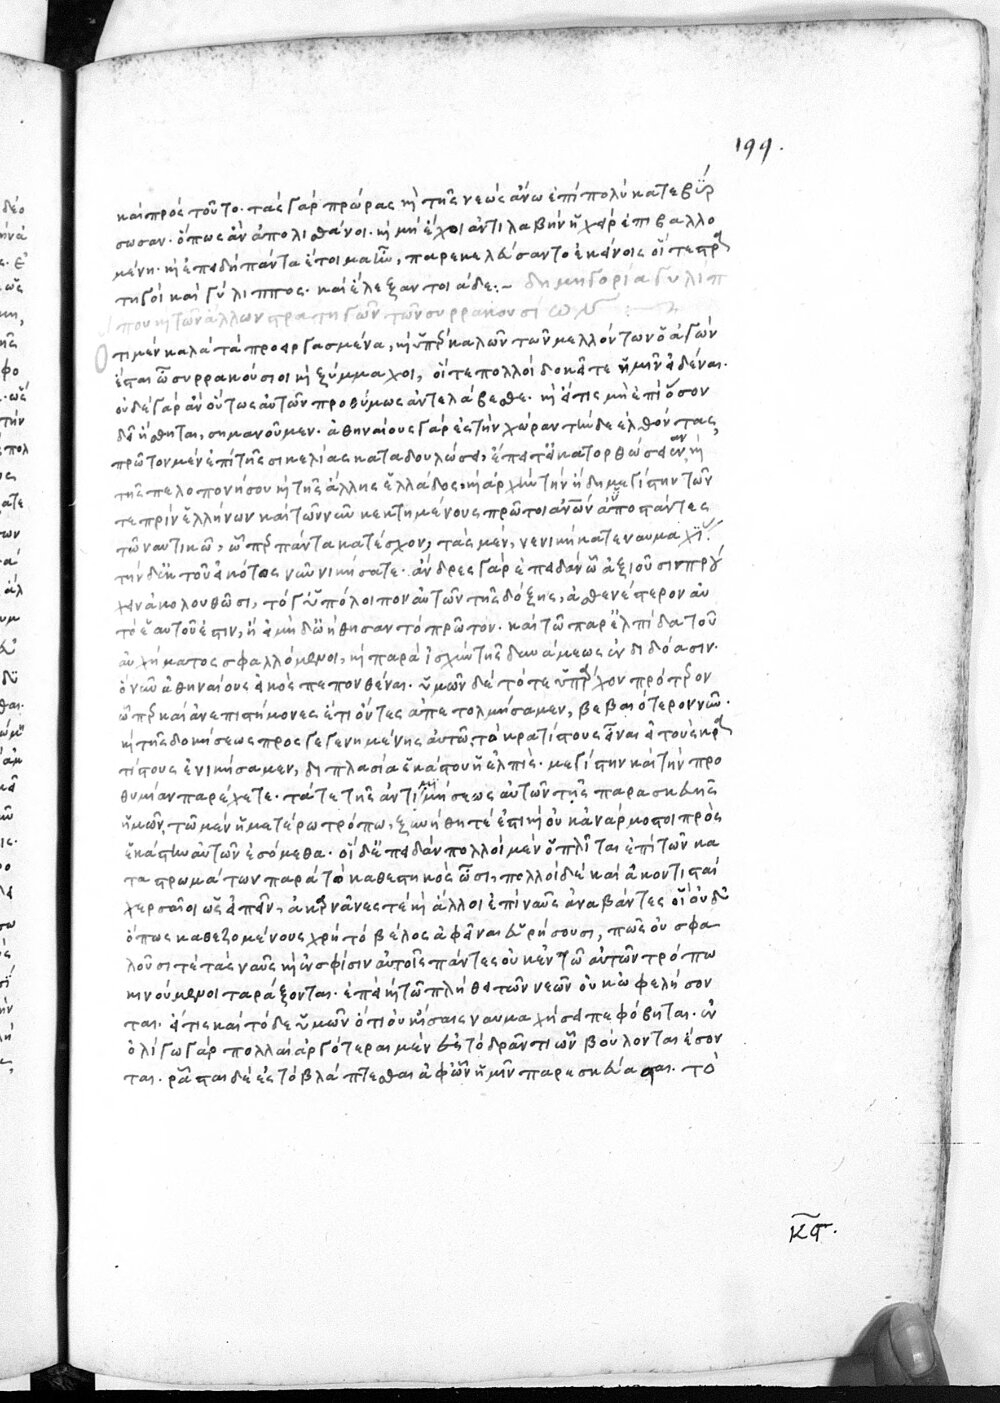 199.
καὶ πρὸς τοῦτο· τὰς γὰρ πρώρας καὶ τῆς νεὼς ἄνω ἐπὶ πολὺ κατεβύρ
σωσαν· ὅπως ἂν ἀπολισθάνοι· καὶ μὴ ἔχοι ἀντιλαβὴν ἡ χεὶρ ἐπιβαλλο
μένη· καὶ ἐπειδὴ πάντα ἑτοῖμα ἦν, παρεκελεύσαντο ἐκείνοις οἵ τε στρα
τηγοὶ καὶ γύλιππος· καὶ ἔλεξαν τοιάδε:- δημηγορία γυλίπ
που καὶ τῶν ἄλλων στρατηγῶν τῶν συρρακουσίων :-
Ὅτι μὲν καλὰ τὰ προειργασμένα, καὶ ὑπὲρ καλῶν τῶν μελλόντων ὁ ἀγὼν
ἔσται ὦ συρρακούσιοι καὶ ξύμμαχοι, οἵ τε πολλοὶ δοκεῖτε ἡμῖν εἰδέναι·
οὐδὲ γὰρ ἂν οὕτως αὐτῶν προθύμως ἀντελάβεσθε· καὶ εἴ τις μὴ ἐπὶ ὅσον
δεῖ ᾔσθηται, σημανοῦμεν· ἀθηναίους γὰρ ἐς τὴν χώραν τήνδε ἐλθόντας,
πρῶτον μὲν ἐπὶ τῆς σικελίας καταδουλώσει, ἔπειτα εἰ κατορθώσειαν, καὶ
τῆς πελοπονήσου καὶ τῆς ἄλλης ἑλλάδος, καὶ ἀρχὴν τὴν ἤδη μεγίστην τῶν
τε πρὶν ἑλλήνων καὶ τῶν νῦν κεκτημένους πρῶτοι ἀνθρώπων ὑποστάντες
τῶ ναυτικῶ, ὧπερ πάντα κατέσχον, τὰς μὲν, νενικήκατε ναυμαχίας·
τὴν δὲ ἐκ τοῦ εἰκότος νῦν νικήσατε· ἄνδρες γὰρ ἐπειδὰν ᾧ ἀξιοῦσι πρού
χειν ἀκολουθῶσι, τό γ' ὑπόλοιπον αὐτῶν τῆς δόξης, ἀσθενέστερον αὐ
τὸ ἑαυτοῦ ἐστιν, ἢ εἰ μηδ' ᾠήθησαν τὸ πρῶτον· καὶ τῶ παρ' ἐλπίδα τοῦ
αὐχήματος σφαλλόμενοι, καὶ παρὰ ἰσχὺν τῆς δυνάμεως ἐνδιδόασιν·
ὃ νῦν ἀθηναίους εἰκὸς πεπονθέναι· ἡμῶν δὲ τό τε ὑπάρχον πρότερον
ὧπερ καὶ ἀνεπιστήμονες ἔτι ὄντες ἀπετολμήσαμεν, βεβαιότερον νῦν·
καὶ τῆς δοκήσεως προσγεγενημένης αὐτῶ, τὸ κρατίστους εἶναι εἰ τοὺς κρα
τίστους ἐνικήσαμεν, διπλασία ἑκάστου ἡ ἐλπὶς· μεγίστην καὶ τὴν προ
θυμίαν παρέχεται· τά τε τῆς ἀντιμιμήσεως αὐτῶν τῆς παρασκευῆς
ἡμῶν, τῶ μὲν ἡμετέρω τρόπω, ξυνήθη τέ ἐστι καὶ οὐκ ἀνάρμοστοι πρὸς
ἕκαστον αὐτῶν ἐσόμεθα· οἱ δὲ ἐπειδὰν πολλοὶ μὲν ὁπλῖται ἐπὶ τῶν κα
ταστρωμάτων παρὰ τὸ καθεστηκὸς ὦσι, πολλοὶ δὲ καὶ ἀκοντισταὶ
χερσαῖοι ὡς εἰπεῖν, ἀκαρνᾶνές τε καὶ ἄλλοι ἐπὶ ναῦς ἀναβάντες οἳ οὐδ'
ὅπως καθεζομένους χρὴ τὸ βέλος ἀφεῖναι εὑρήσουσι, πῶς οὐ σφα
λοῦσί τε τὰς ναῦς καὶ ἐν σφίσιν αὐτοῖς πάντες οὐκ ἐν τῶ αὐτῶν τρόπω
κινούμενοι ταράξονται· ἐπεὶ καὶ τῶ πλήθει τῶν νεῶν οὐκ ὠφελήσον
ται· εἴ τις καὶ τόδε ὑμῶν ὅτι οὐκ ἴσαις ναυμαχήσει πεφόβηται· ἐν
ὀλίγω γὰρ πολλαὶ ἀργότεραι μὲν ἐς τὸ δρᾶν τι ὧν βούλονται ἔσον
ται· ῥᾷσται δὲ ἐς τὸ βλάπτεσθαι ἀφ' ὧν ἡμῖν παρεσκεύασται· τὸ
κϛ.